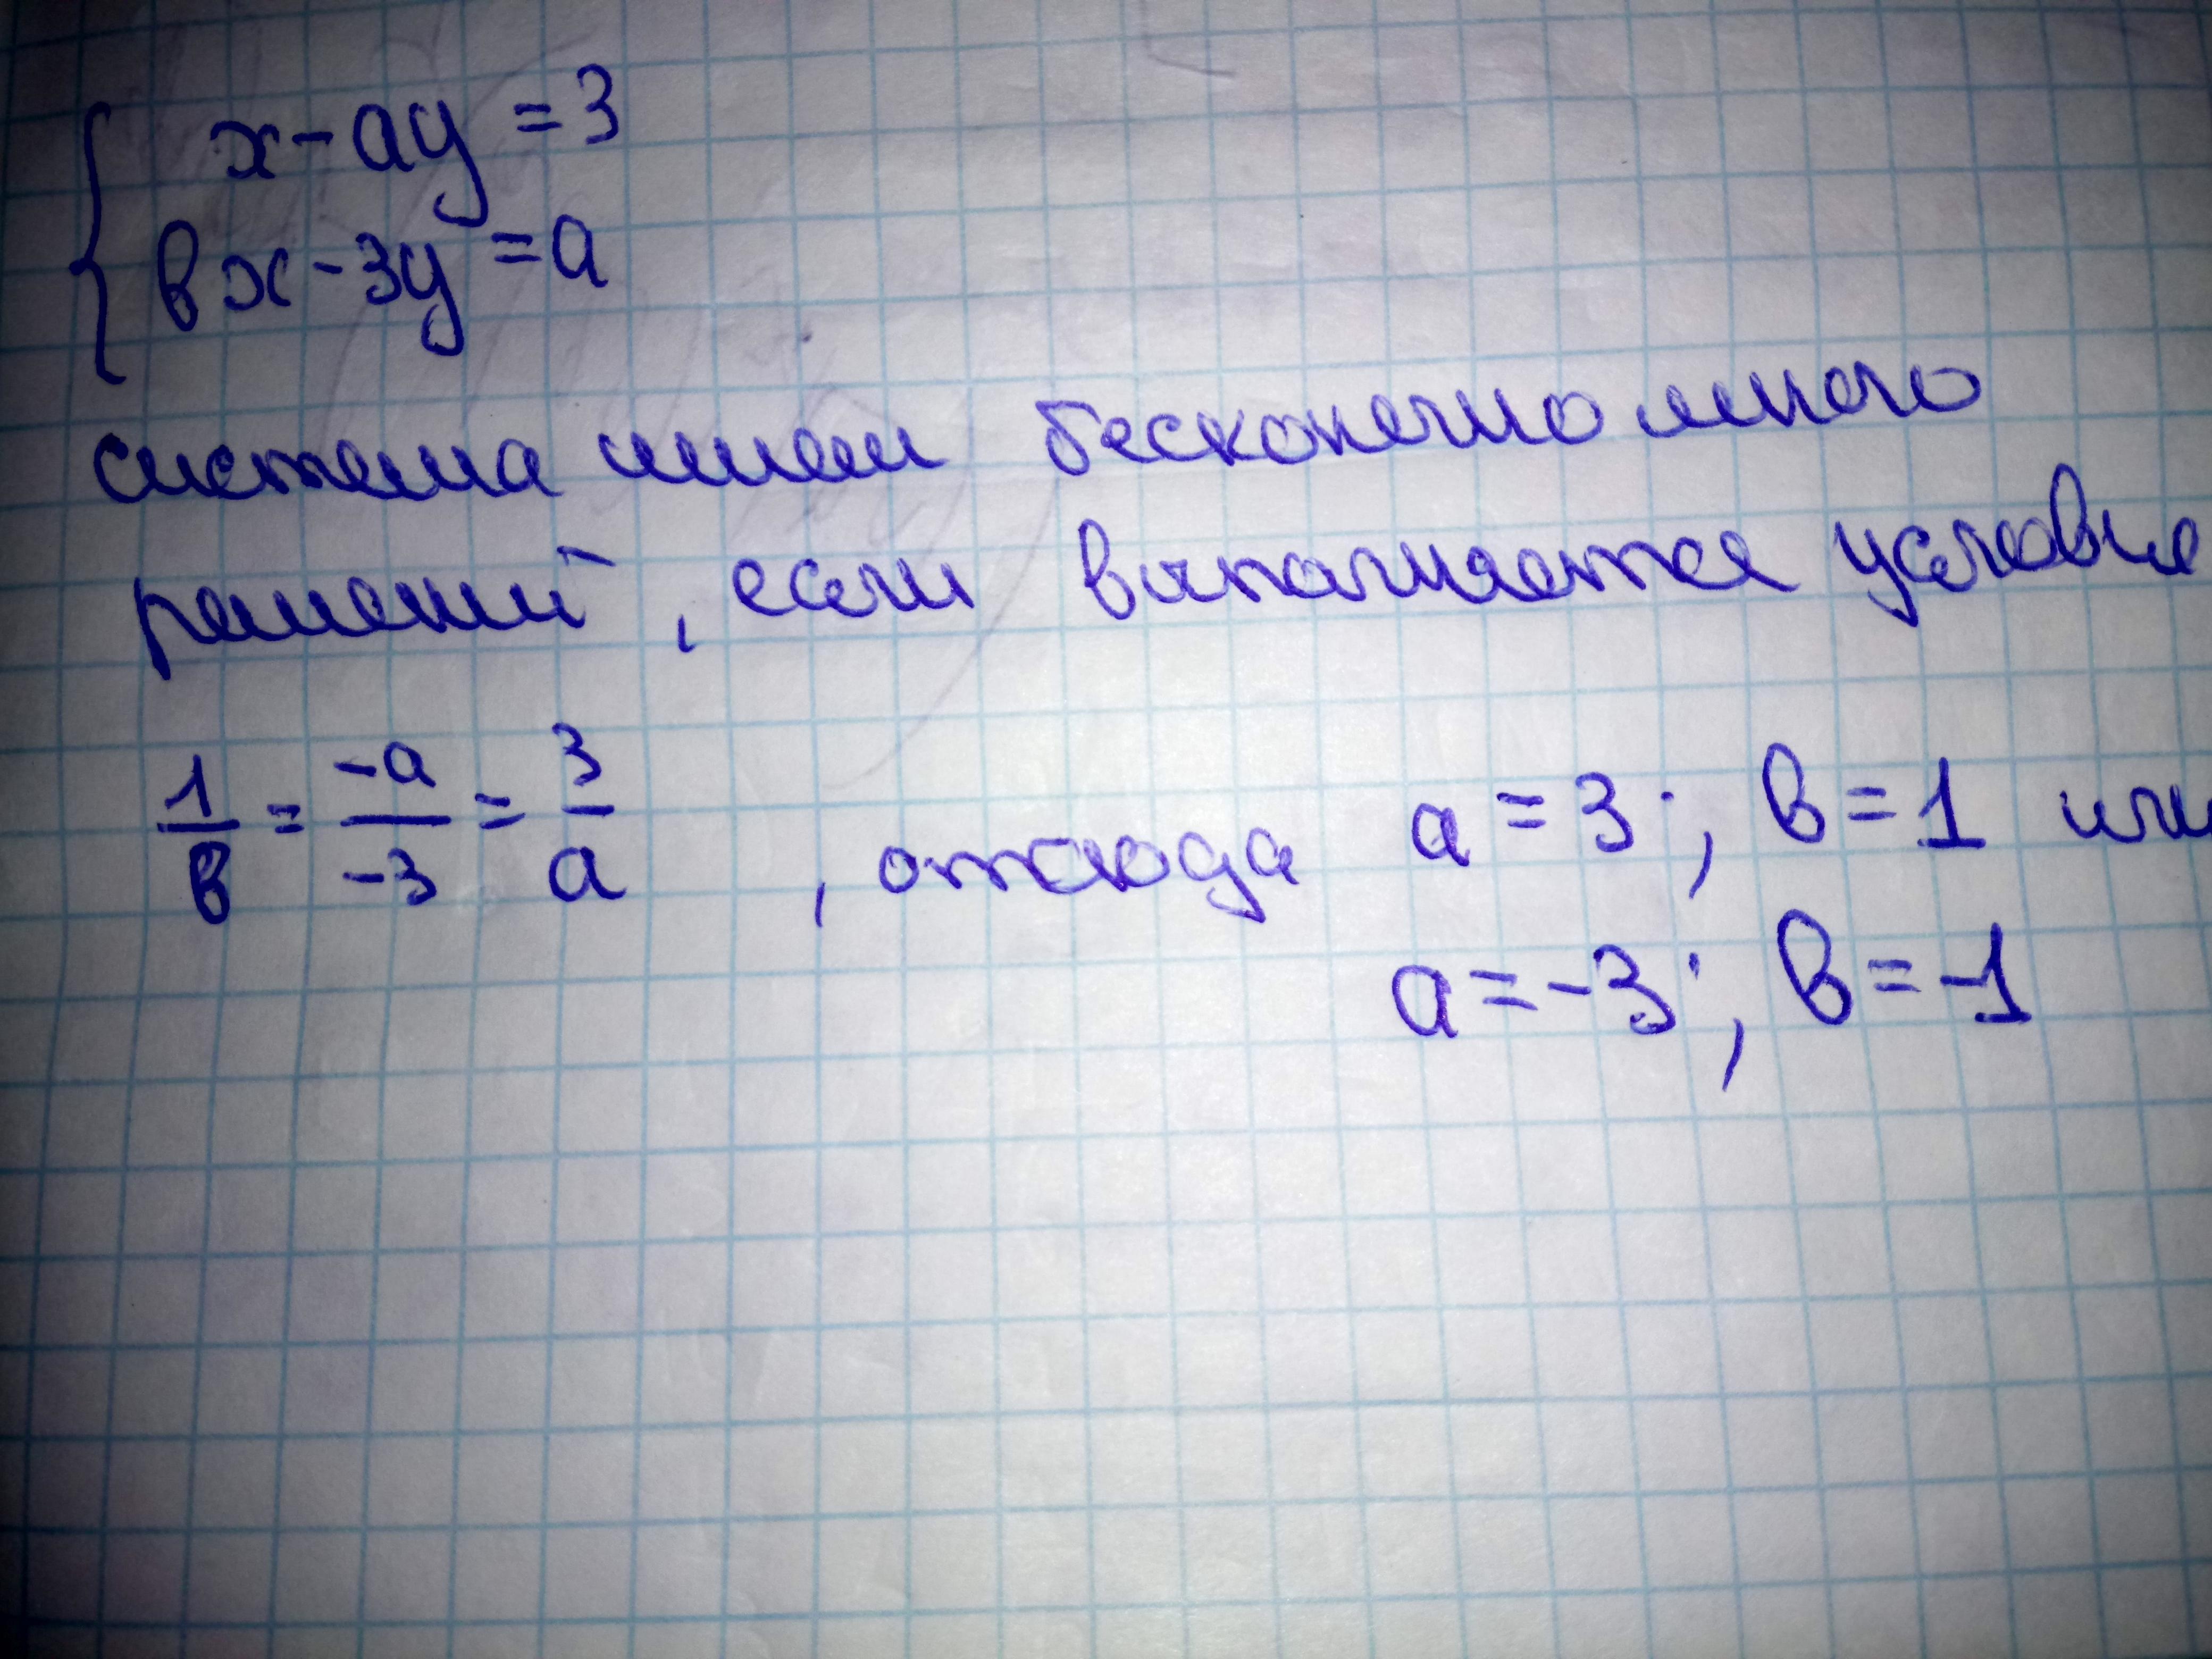 x - ay = 3
вx - 3y = a
система имеет бесконечно много
решений, если выполняется условие
1/в = -a/-3 = 3/a , отсюда a = 3; в = 1 или
a = -3; в = -1